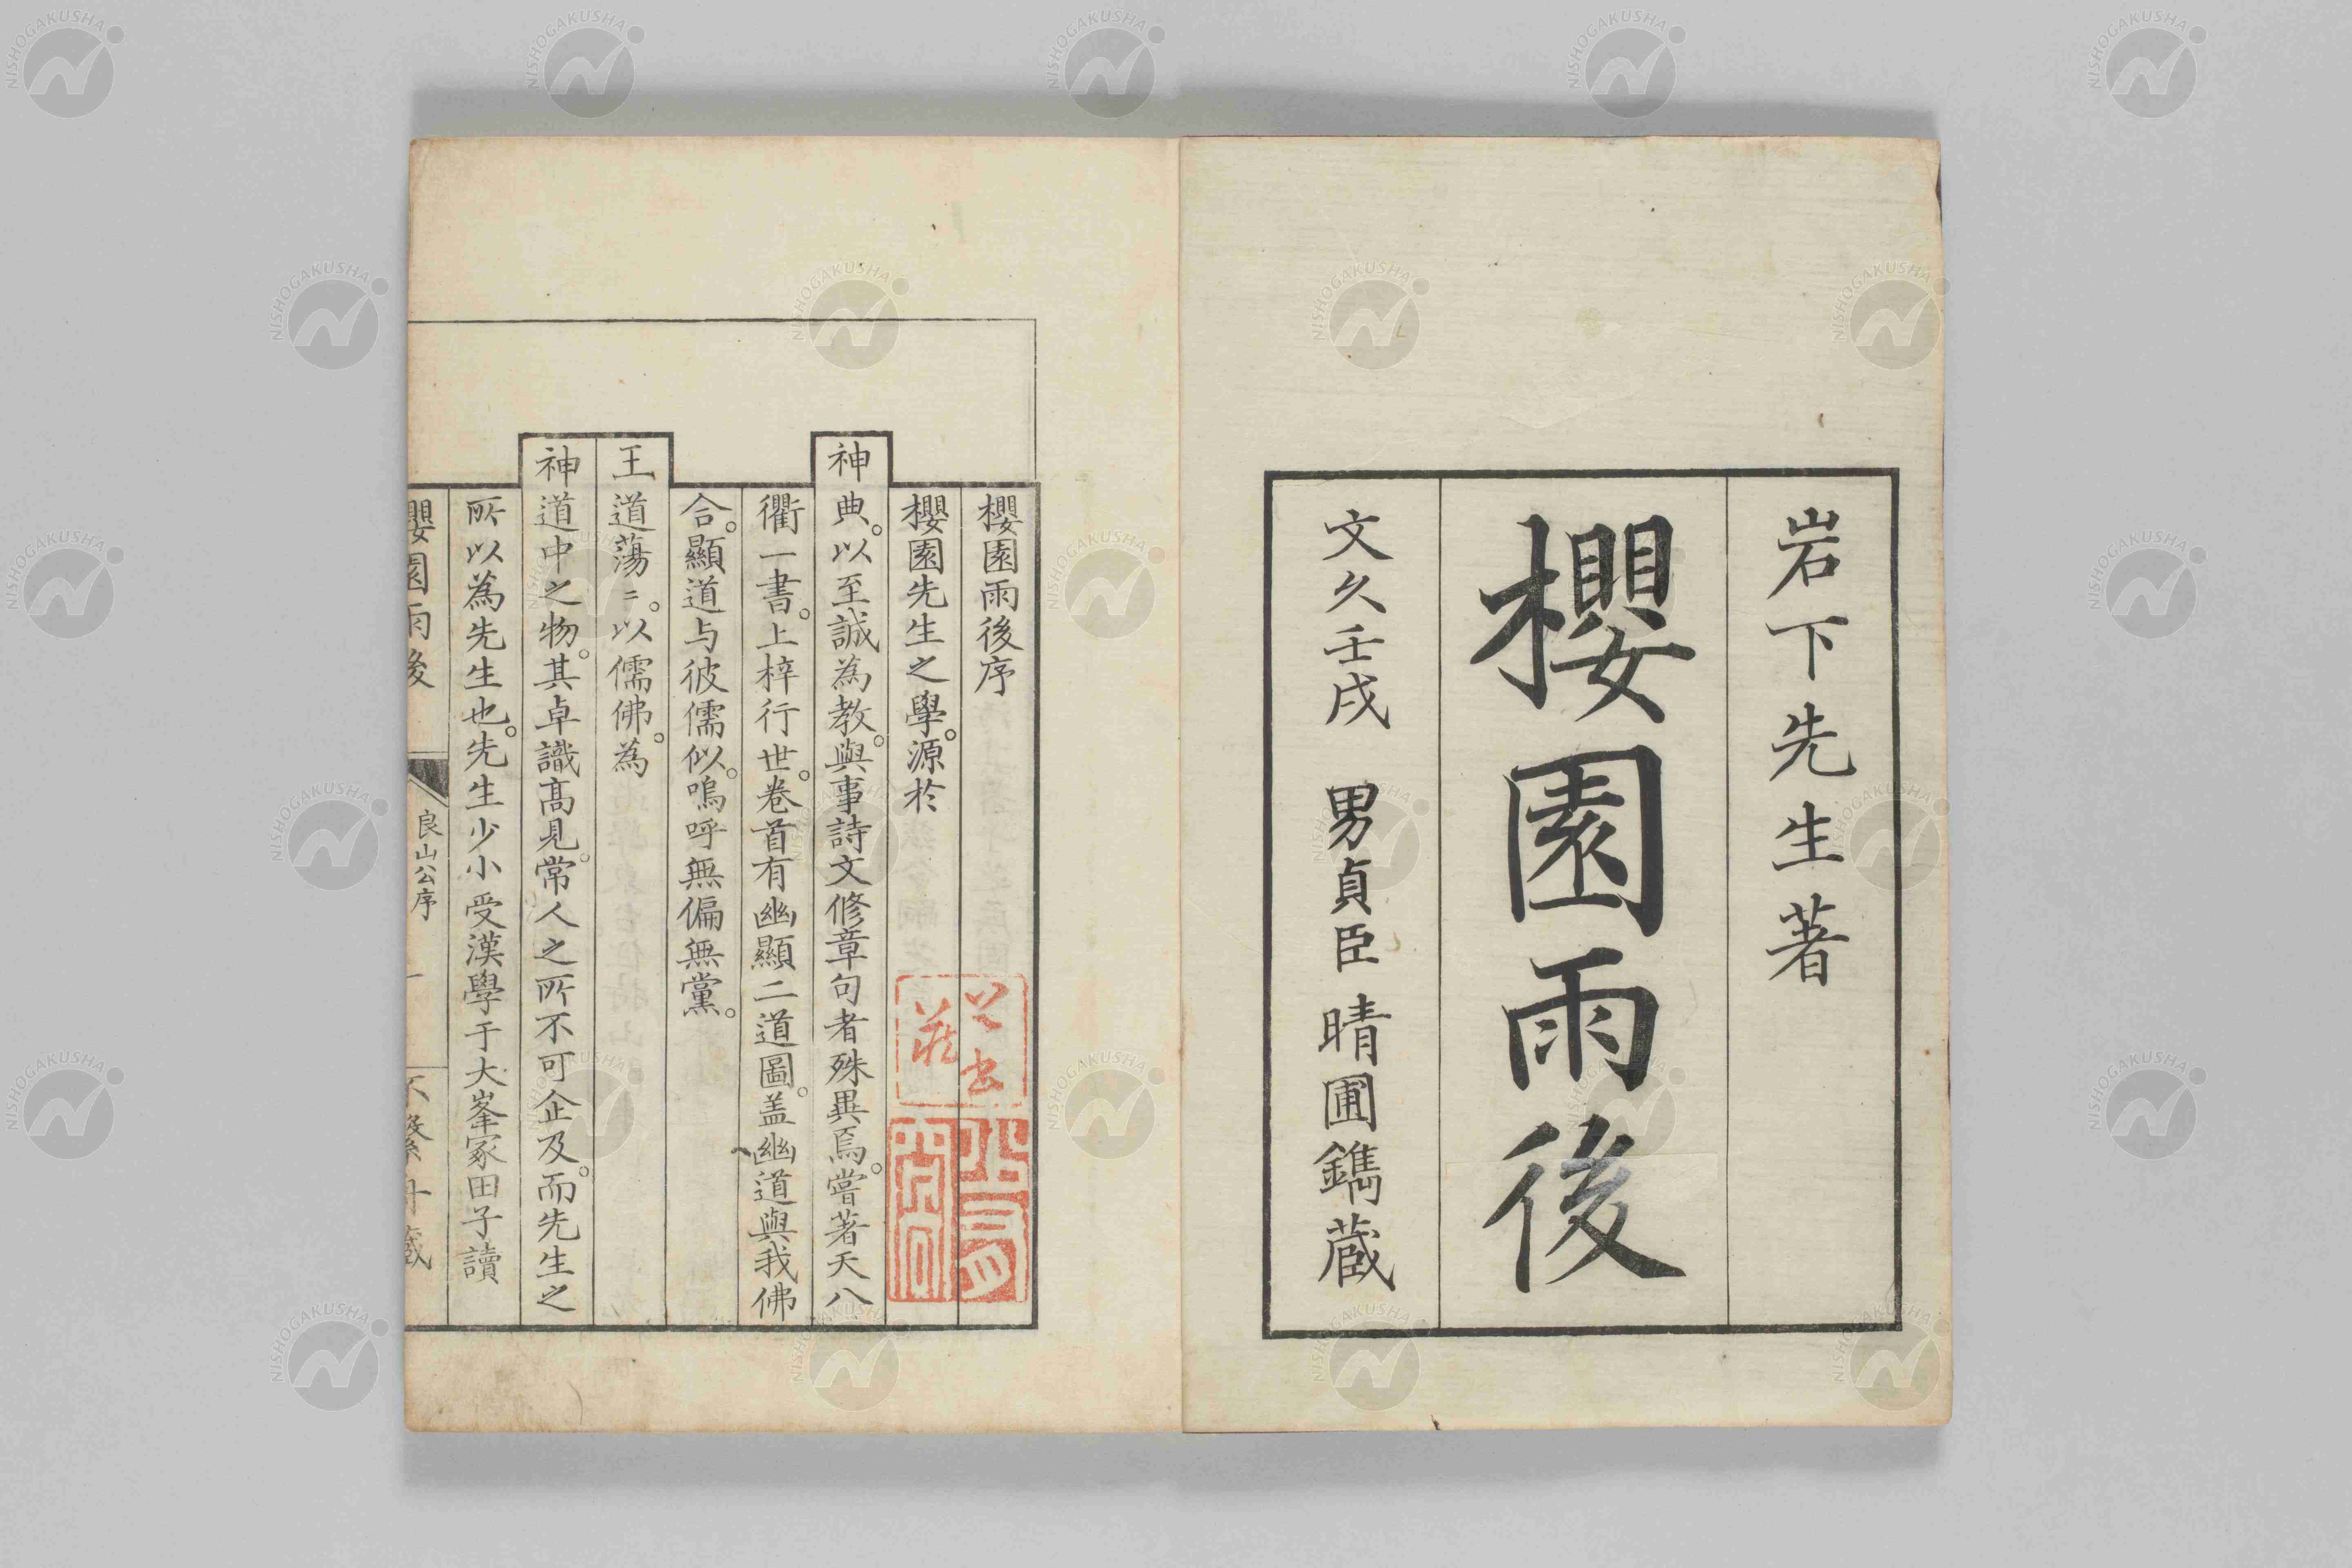 岩下先生著
櫻園雨後
文久壬戌 男貞臣 晴圃鐫蔵
櫻園雨後序
櫻園先生之學。源於
神典。以至誠為教。與事詩文修章句者殊異焉。嘗著天八
衢一書。上梓行世。卷首有幽顯二道圖。盖幽道與我佛
合。顯道与彼儒似。嗚呼無偏無黨。
王道蕩〻。以儒佛。為
神道中之物。其卓識髙見。常人之所不可企及。而先生之
所以為先生也。先生少小受漢學于大峯冢田子讀
櫻園雨後
良山公序
一
不繫舟蔵
NISHOGAKUSHA